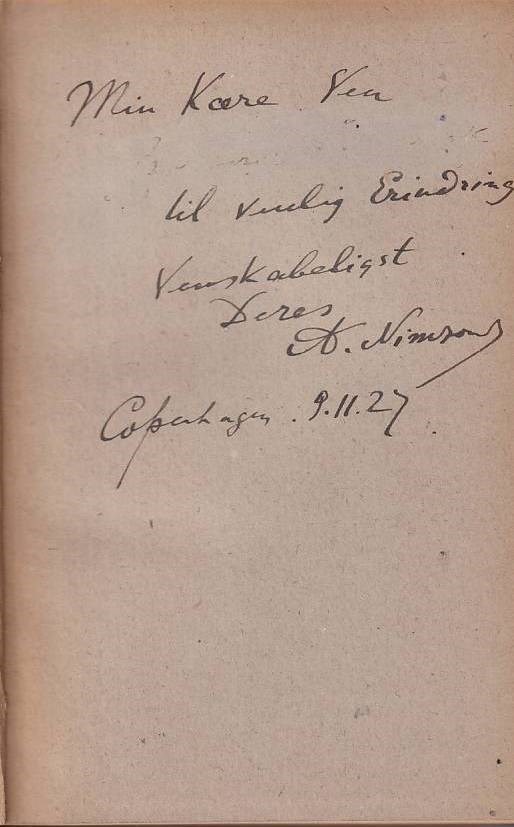 Min Kære Ven
til venlig Erindring
Venskabeligst
Deres
A. Nimzowitsch
Copenhagen . 9.11.27